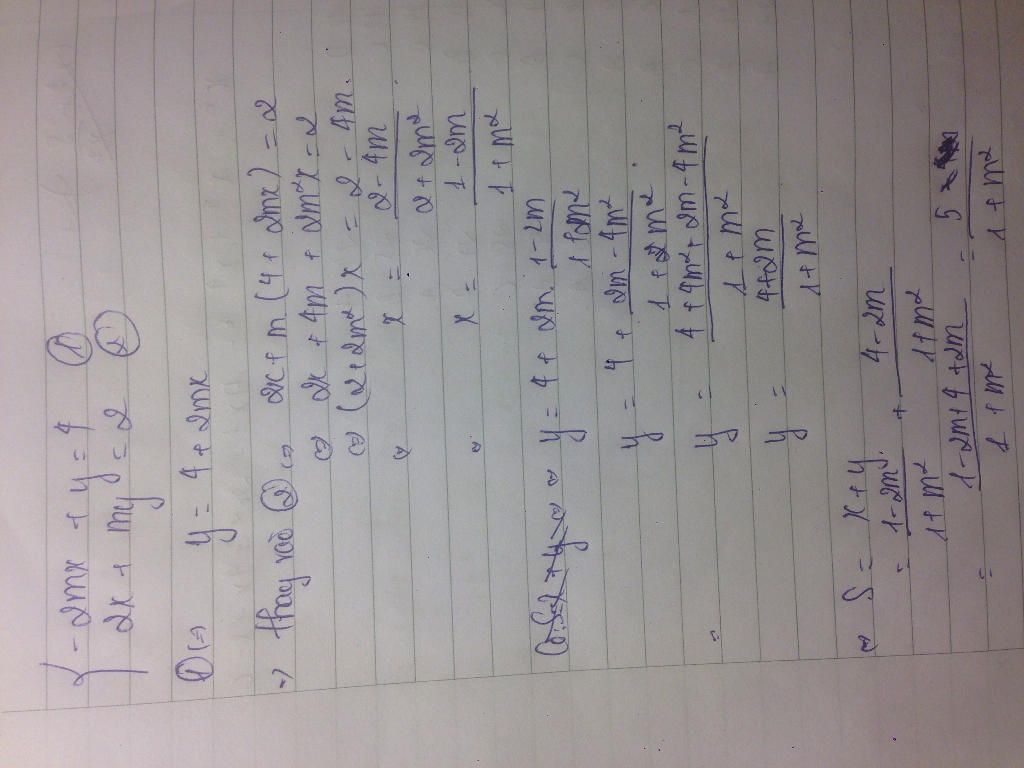 { -2mx + y = 4 ①
2x + my = 2 ②
① (=) y = 4 + 2mx
=> thay vào ② (=) 2x + m (4 + 2mx) = 2
⇔ 2x + 4m + 2m²x = 2
⇔ (2 + 2m²) x = 2 - 4m
⇔ x = (2 - 4m)/(2 + 2m²)
⇔ x = (1 - 2m)/(1 + m²)
⇔ y = 4 + 2m (1 - 2m)/(1 + 2m²)
y = 4 + (2m - 4m²)/(1 + 2m²)
y = (4 + 4m² + 2m - 4m²)/(1 + m²)
y = (4 + 2m)/(1 + m²)
⇔ S = x + y
= (1 - 2m)/(1 + m²) + (4 - 2m)/(1 + m²)
= (1 - 2m + 4 + 2m)/(1 + m²) = 5/(1 + m²)